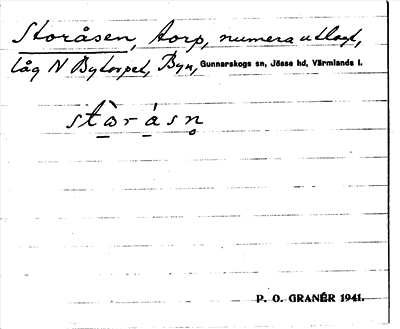 Storåsen, torp, numera utlagt,
låg N Bytorpet, Byn, Gunnarskogs sn, Jösse hd, Värmlands l.
stòrásn̥
P. O. GRANÉR 1941.